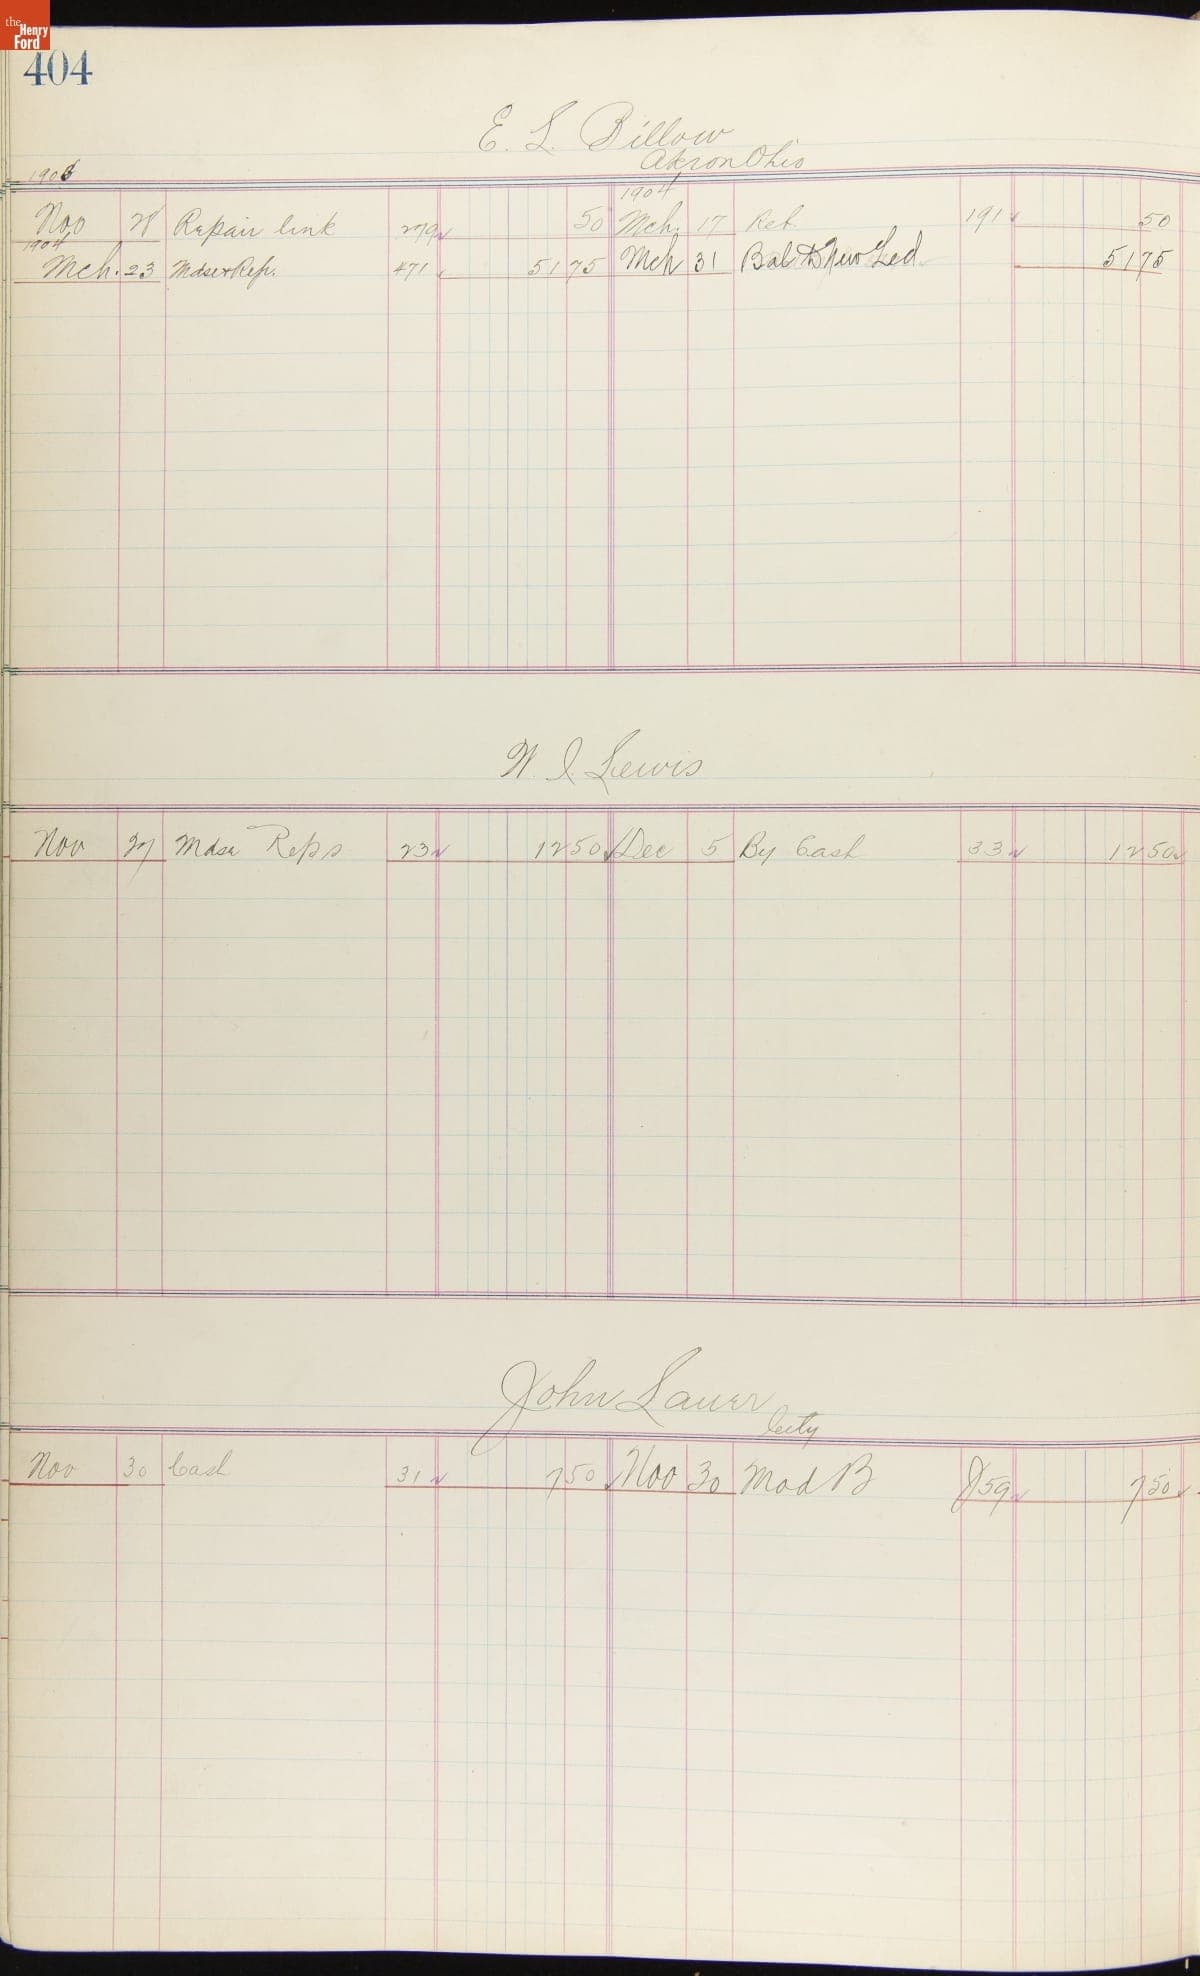 the Henry Ford
404
E. L. Billow
Akron Ohio
1903
1904
Nov Repair link 279 50 Mch. 17 Ret. 191 50
1904
Mch. 23 Mdse & Rep. 471 51 75 Mch 31 Bal to New Led 51 75
W. I. Lewis
Nov 27 Mdse Reps 23 12 50 Dec 5 By Cash 33 12 50
John Lauer
City
Nov 30 Cash 31 7 50 Nov 30 Mod B J 59 7 50